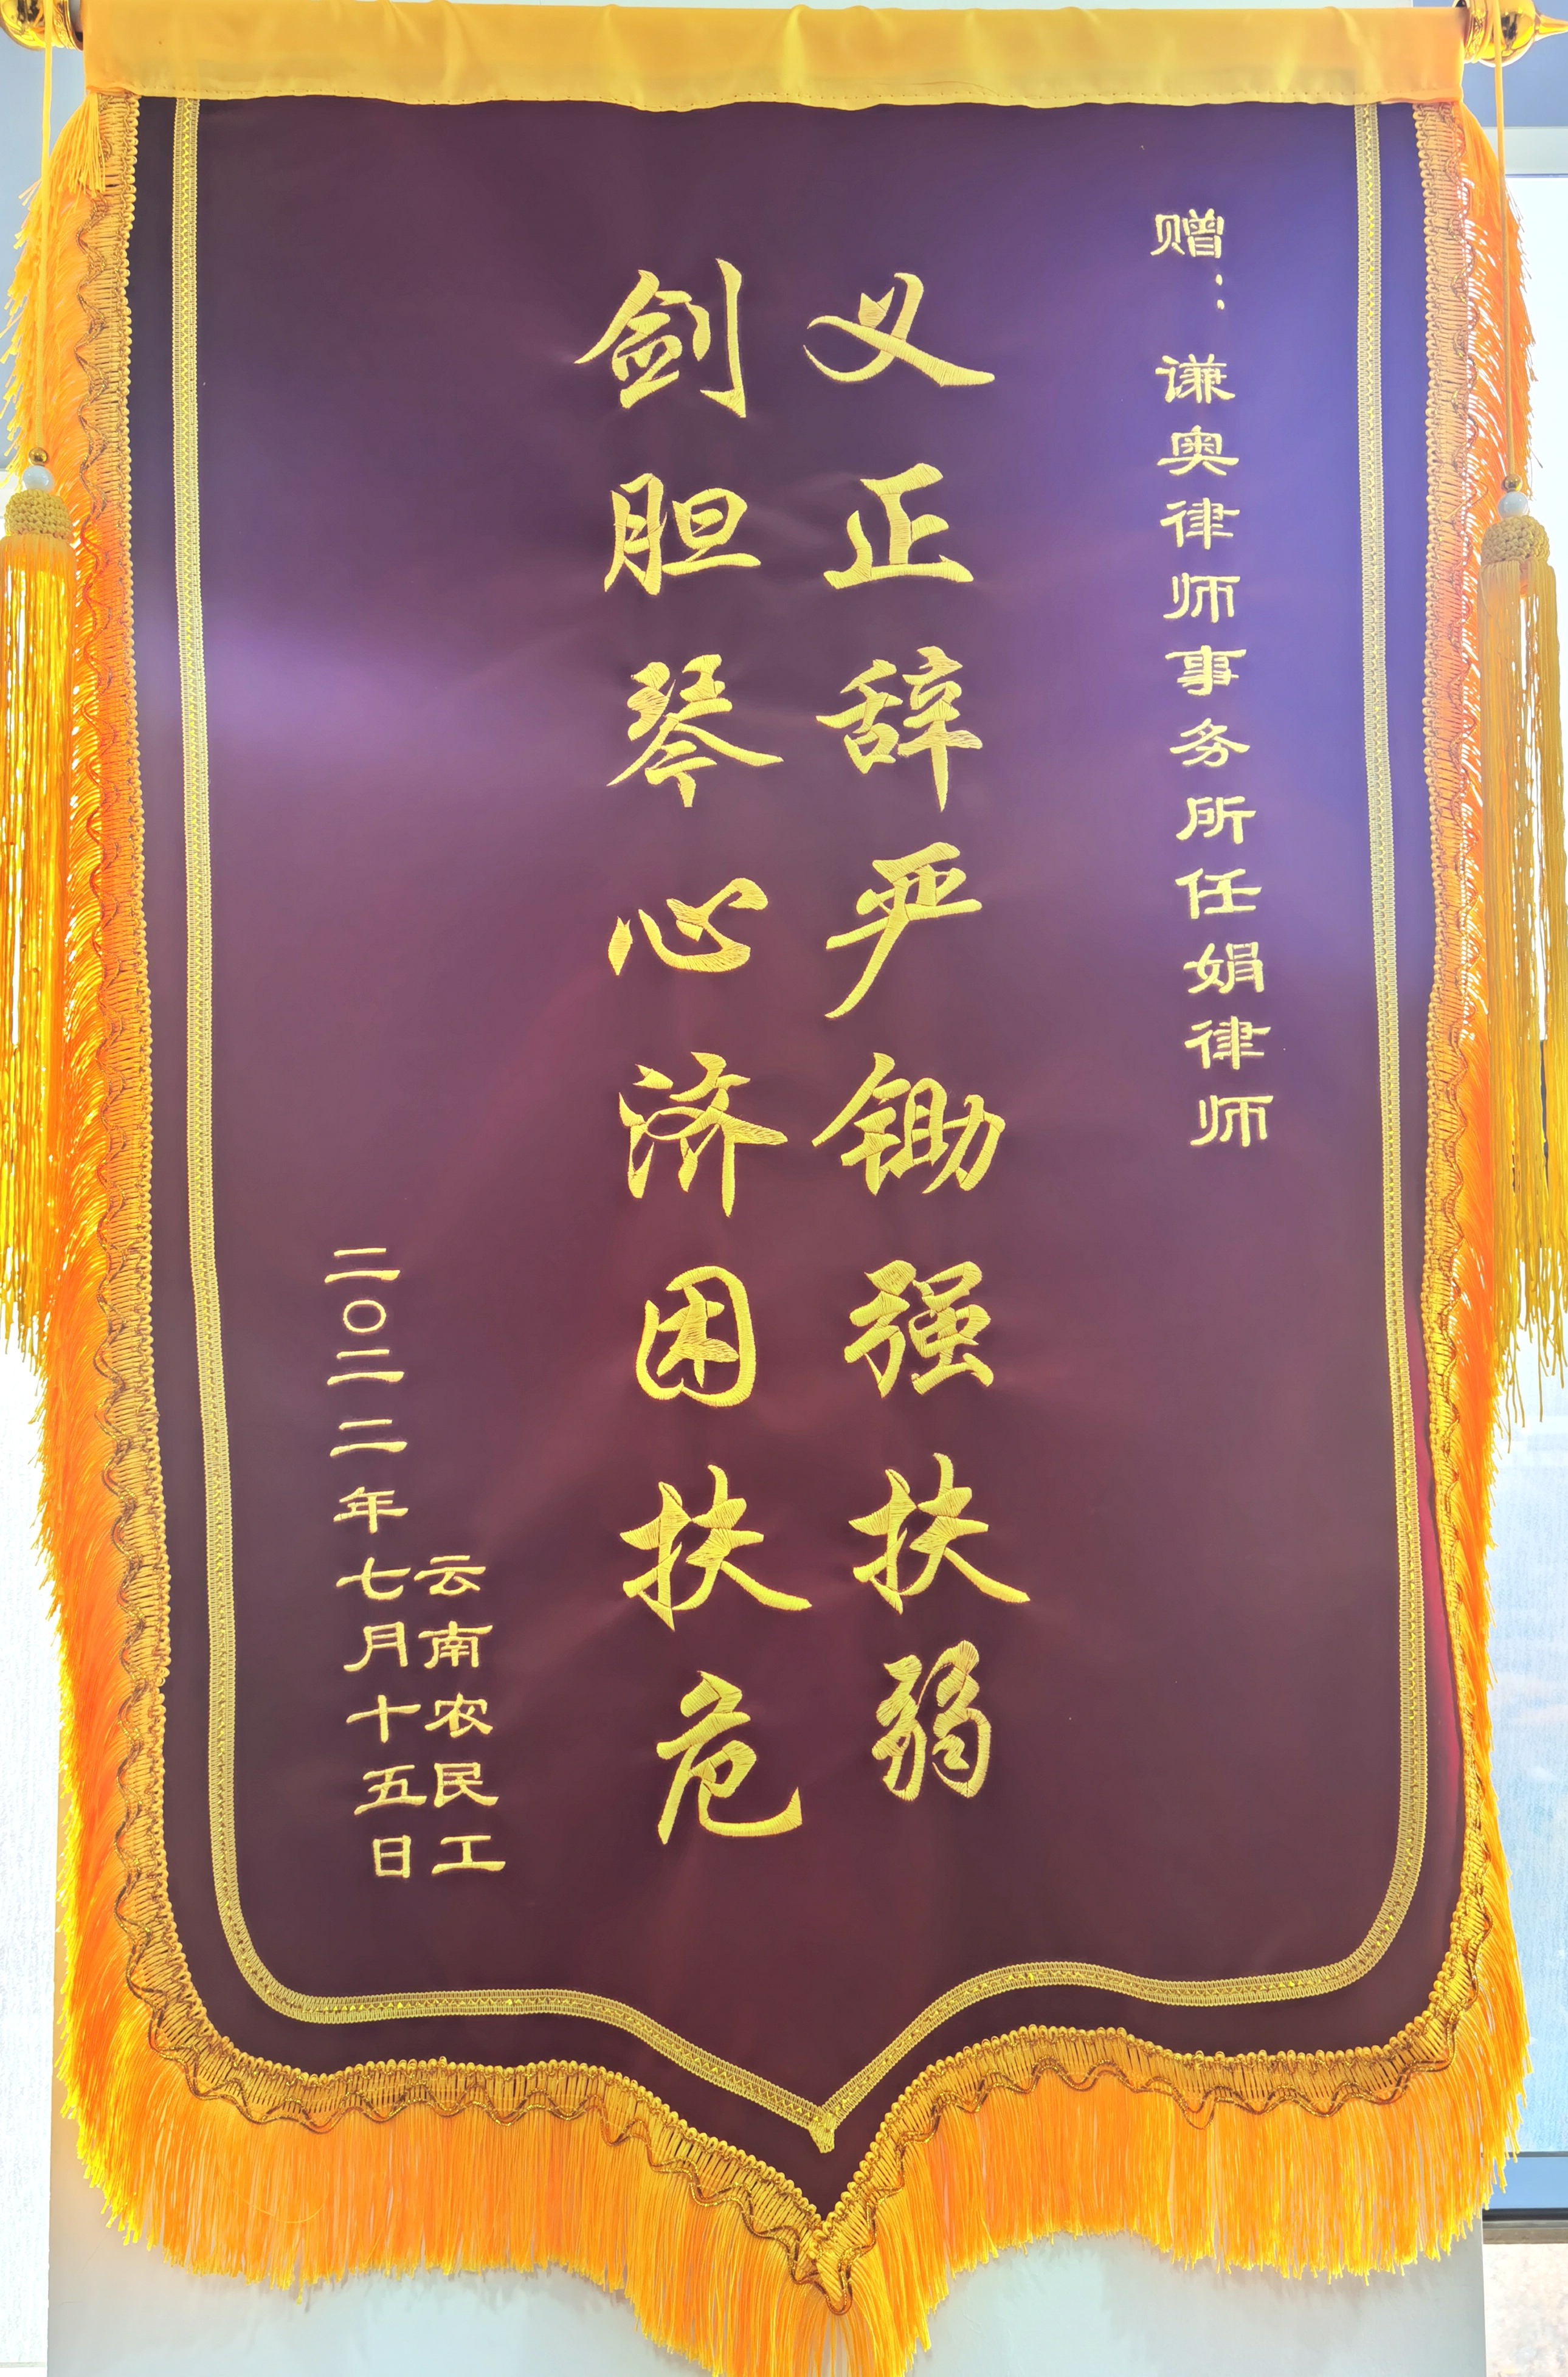 赠：谦奥律师事务所任娟律师
义正辞严锄强扶弱
剑胆琴心济困扶危
云南农民工
二〇二二年七月十五日